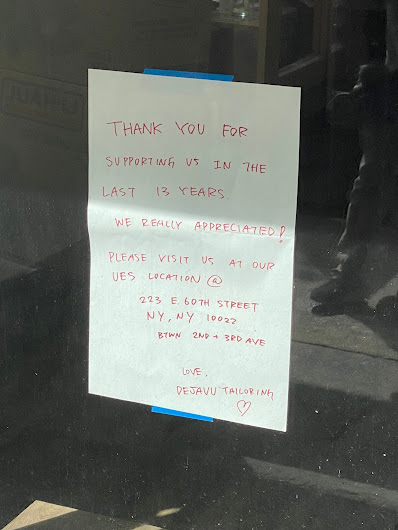 THANK YOU FOR
SUPPORTING US IN THE
LAST 13 YEARS
WE REALLY APPRECIATED!
PLEASE VISIT US AT OUR
UES LOCATION @
223 E. 60TH STREET
NY, NY 10022
BTWN 2ND + 3RD AVE
LOVE,
DEJAVU TAILORING